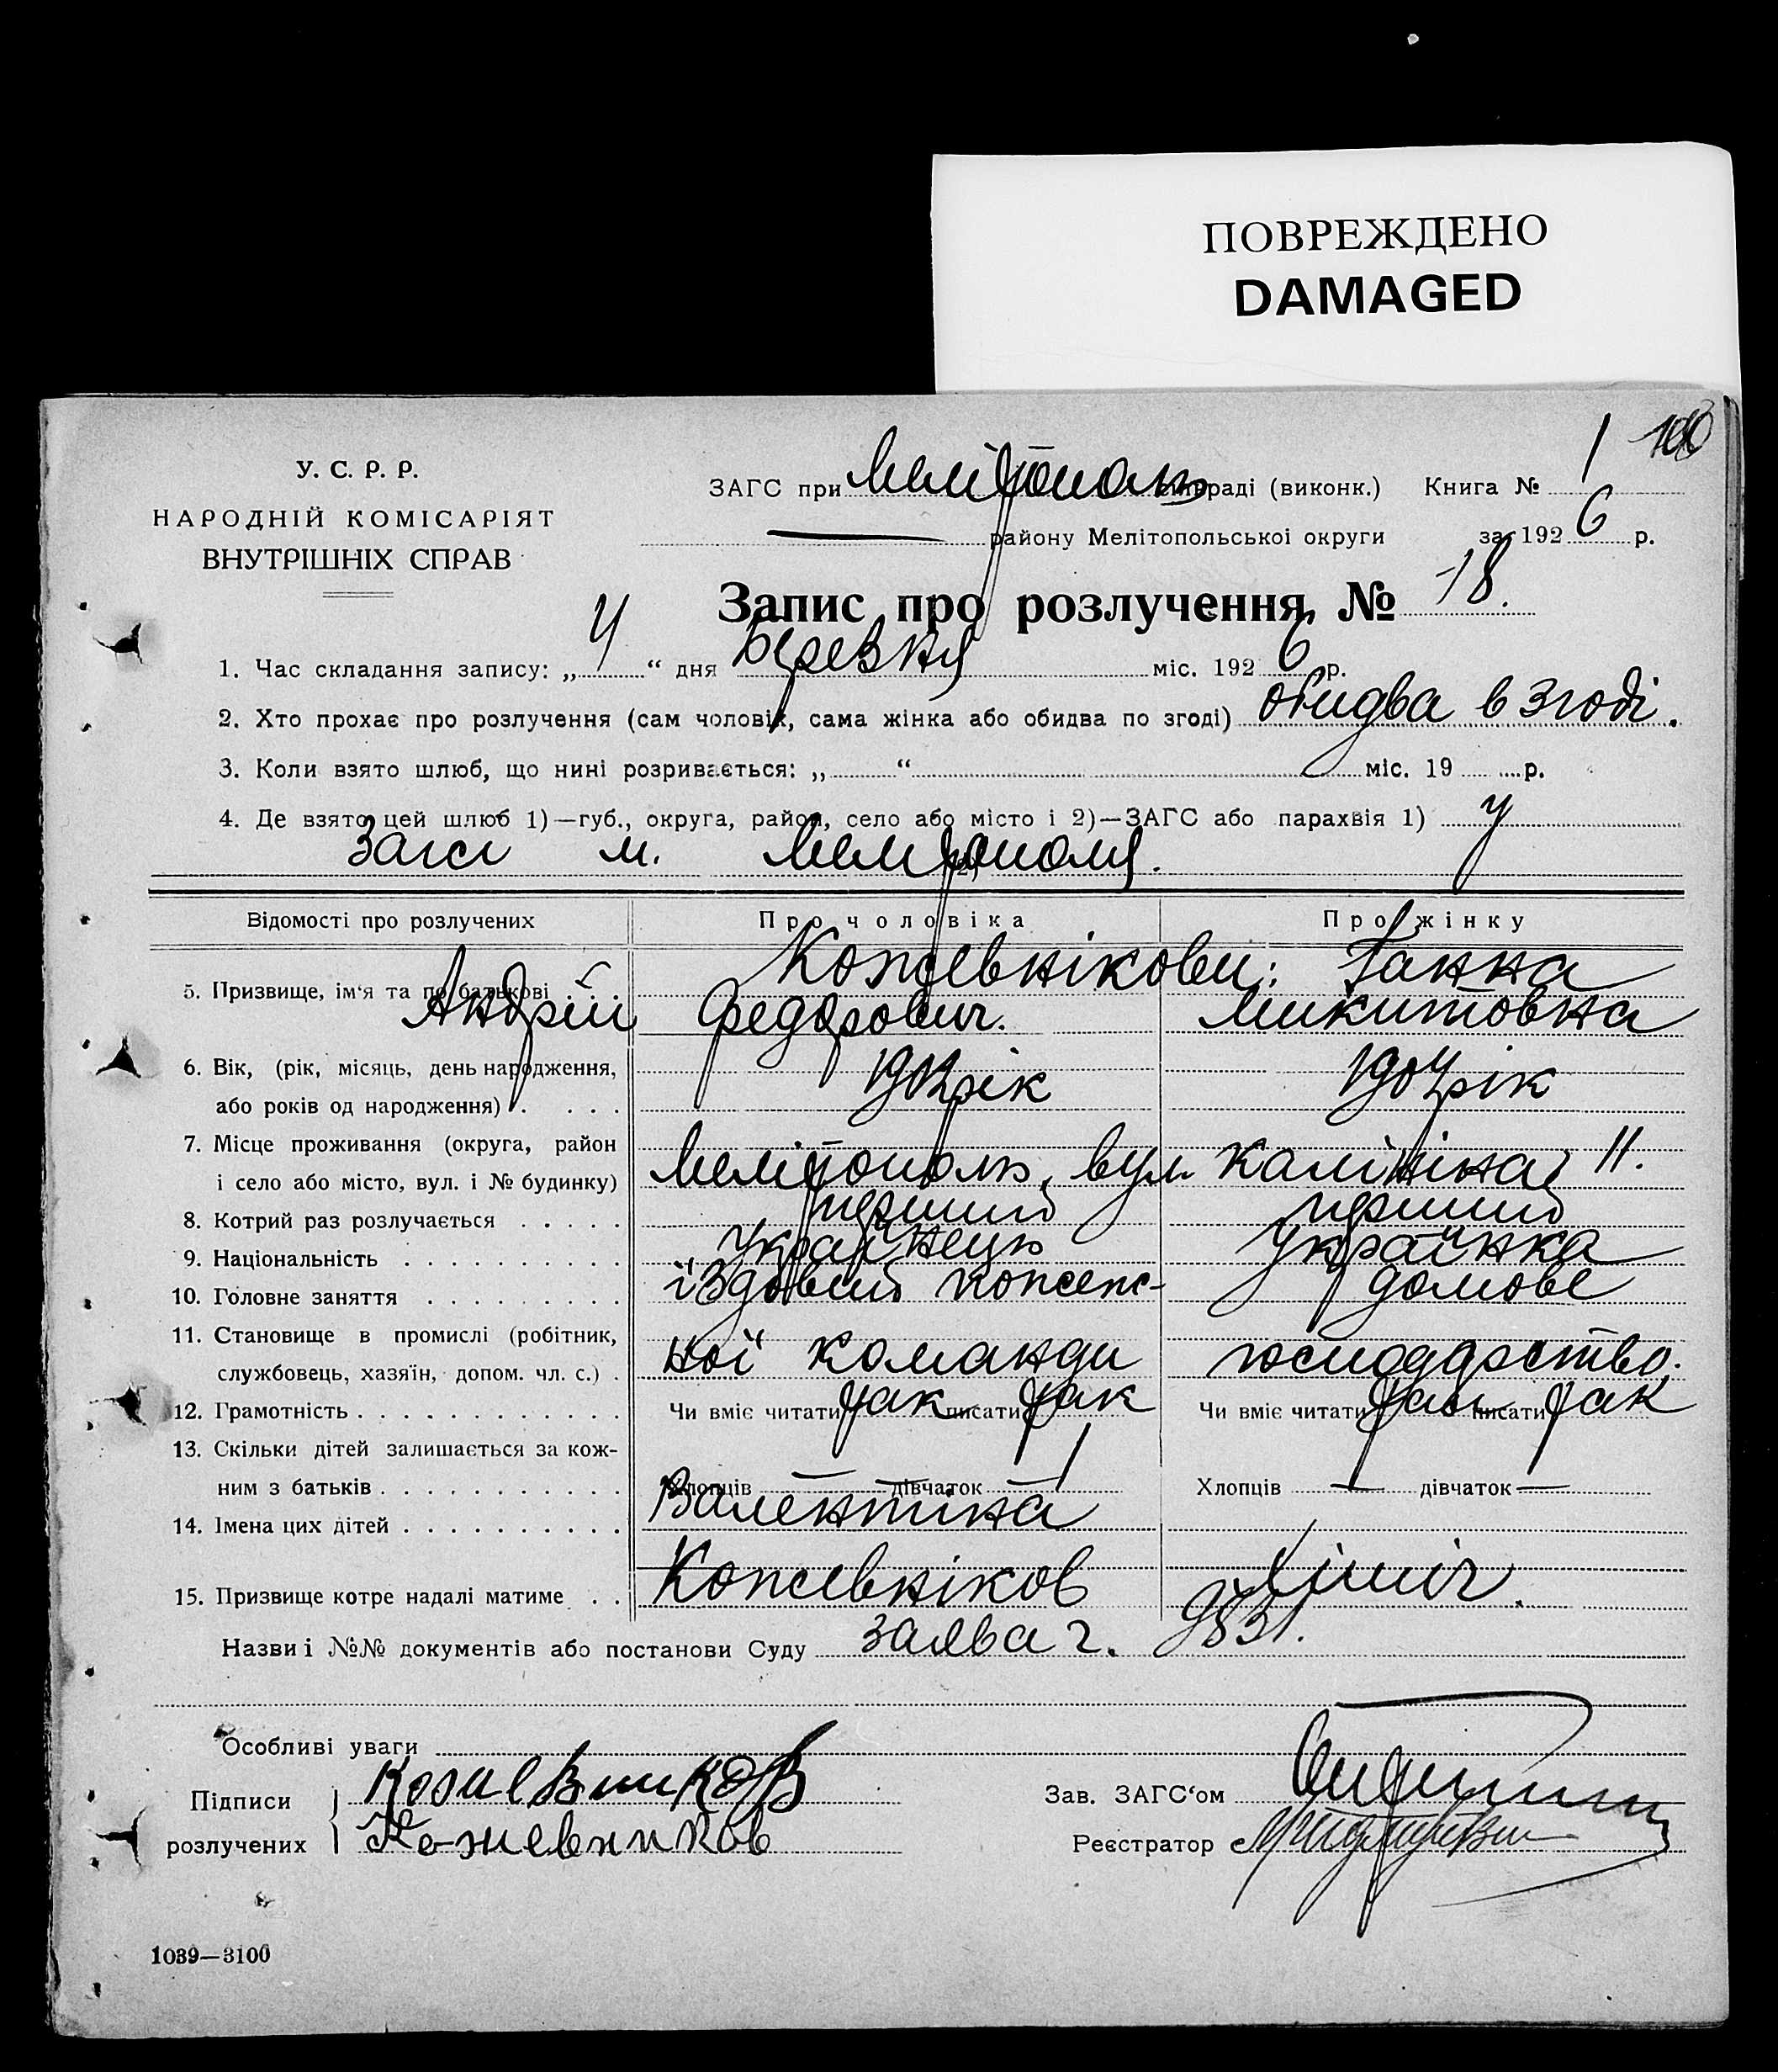 ПОВРЕЖДЕНО
DAMAGED
У. С. Р. Р.
НАРОДНІЙ КОМІСАРІЯТ
ВНУТРІШНІХ СПРАВ
ЗАГС при Мелітополь раді (виконк.) Книга № 1
району Мелітопольської округи за 1926 р.
Запис про розлучення № 18.
1. Час складання запису: „ 4 “ дня Березня міс. 1926 р.
2. Хто прохає про розлучення (сам чоловік, сама жінка або обидва по згоді) обидва в згоді.
3. Коли взято шлюб, що нині розривається: „ “ міс. 19 р.
4. Де взято цей шлюб 1)—губ., округа, район, село або місто і 2)—ЗАГС або парахвія 1) у
Загсі м. Мелітополя.
Відомості про розлучених Про чоловіка Про жінку
5. Призвище, ім‘я та по батькові Кожевнікови: Ганна
Андрій Федорович. Микитовна
6. Вік, (рік, місяць, день народження,
або років од народження) рік 1904 рік
7. Місце проживання (округа, район
і село або місто, вул. і № будинку) Мелітополь, вул. Калініна 11.
8. Котрий раз розлучається перший перший
9. Національність Українець Українка
10. Головне заняття їздовий пожеж- домове
11. Становище в промислі (робітник,
службовець, хазяїн, допом. чл. с.) ної команди господарство.
12. Грамотність Чи вміє читати так писати так Чи вміє читати так писати так
13. Скільки дітей залишається за кож-
ним з батьків Хлопців — дівчаток 1 Хлопців — дівчаток —
14. Імена цих дітей Валентіна
15. Призвище котре надалі матиме Кожевніков
Назви і №№ документів або постанови Суду заява ч. 9831.
Особливі уваги
Підписи Кожевников Зав. ЗАГС‘ом
розлучених Кожевников Реєстратор
1039—3100